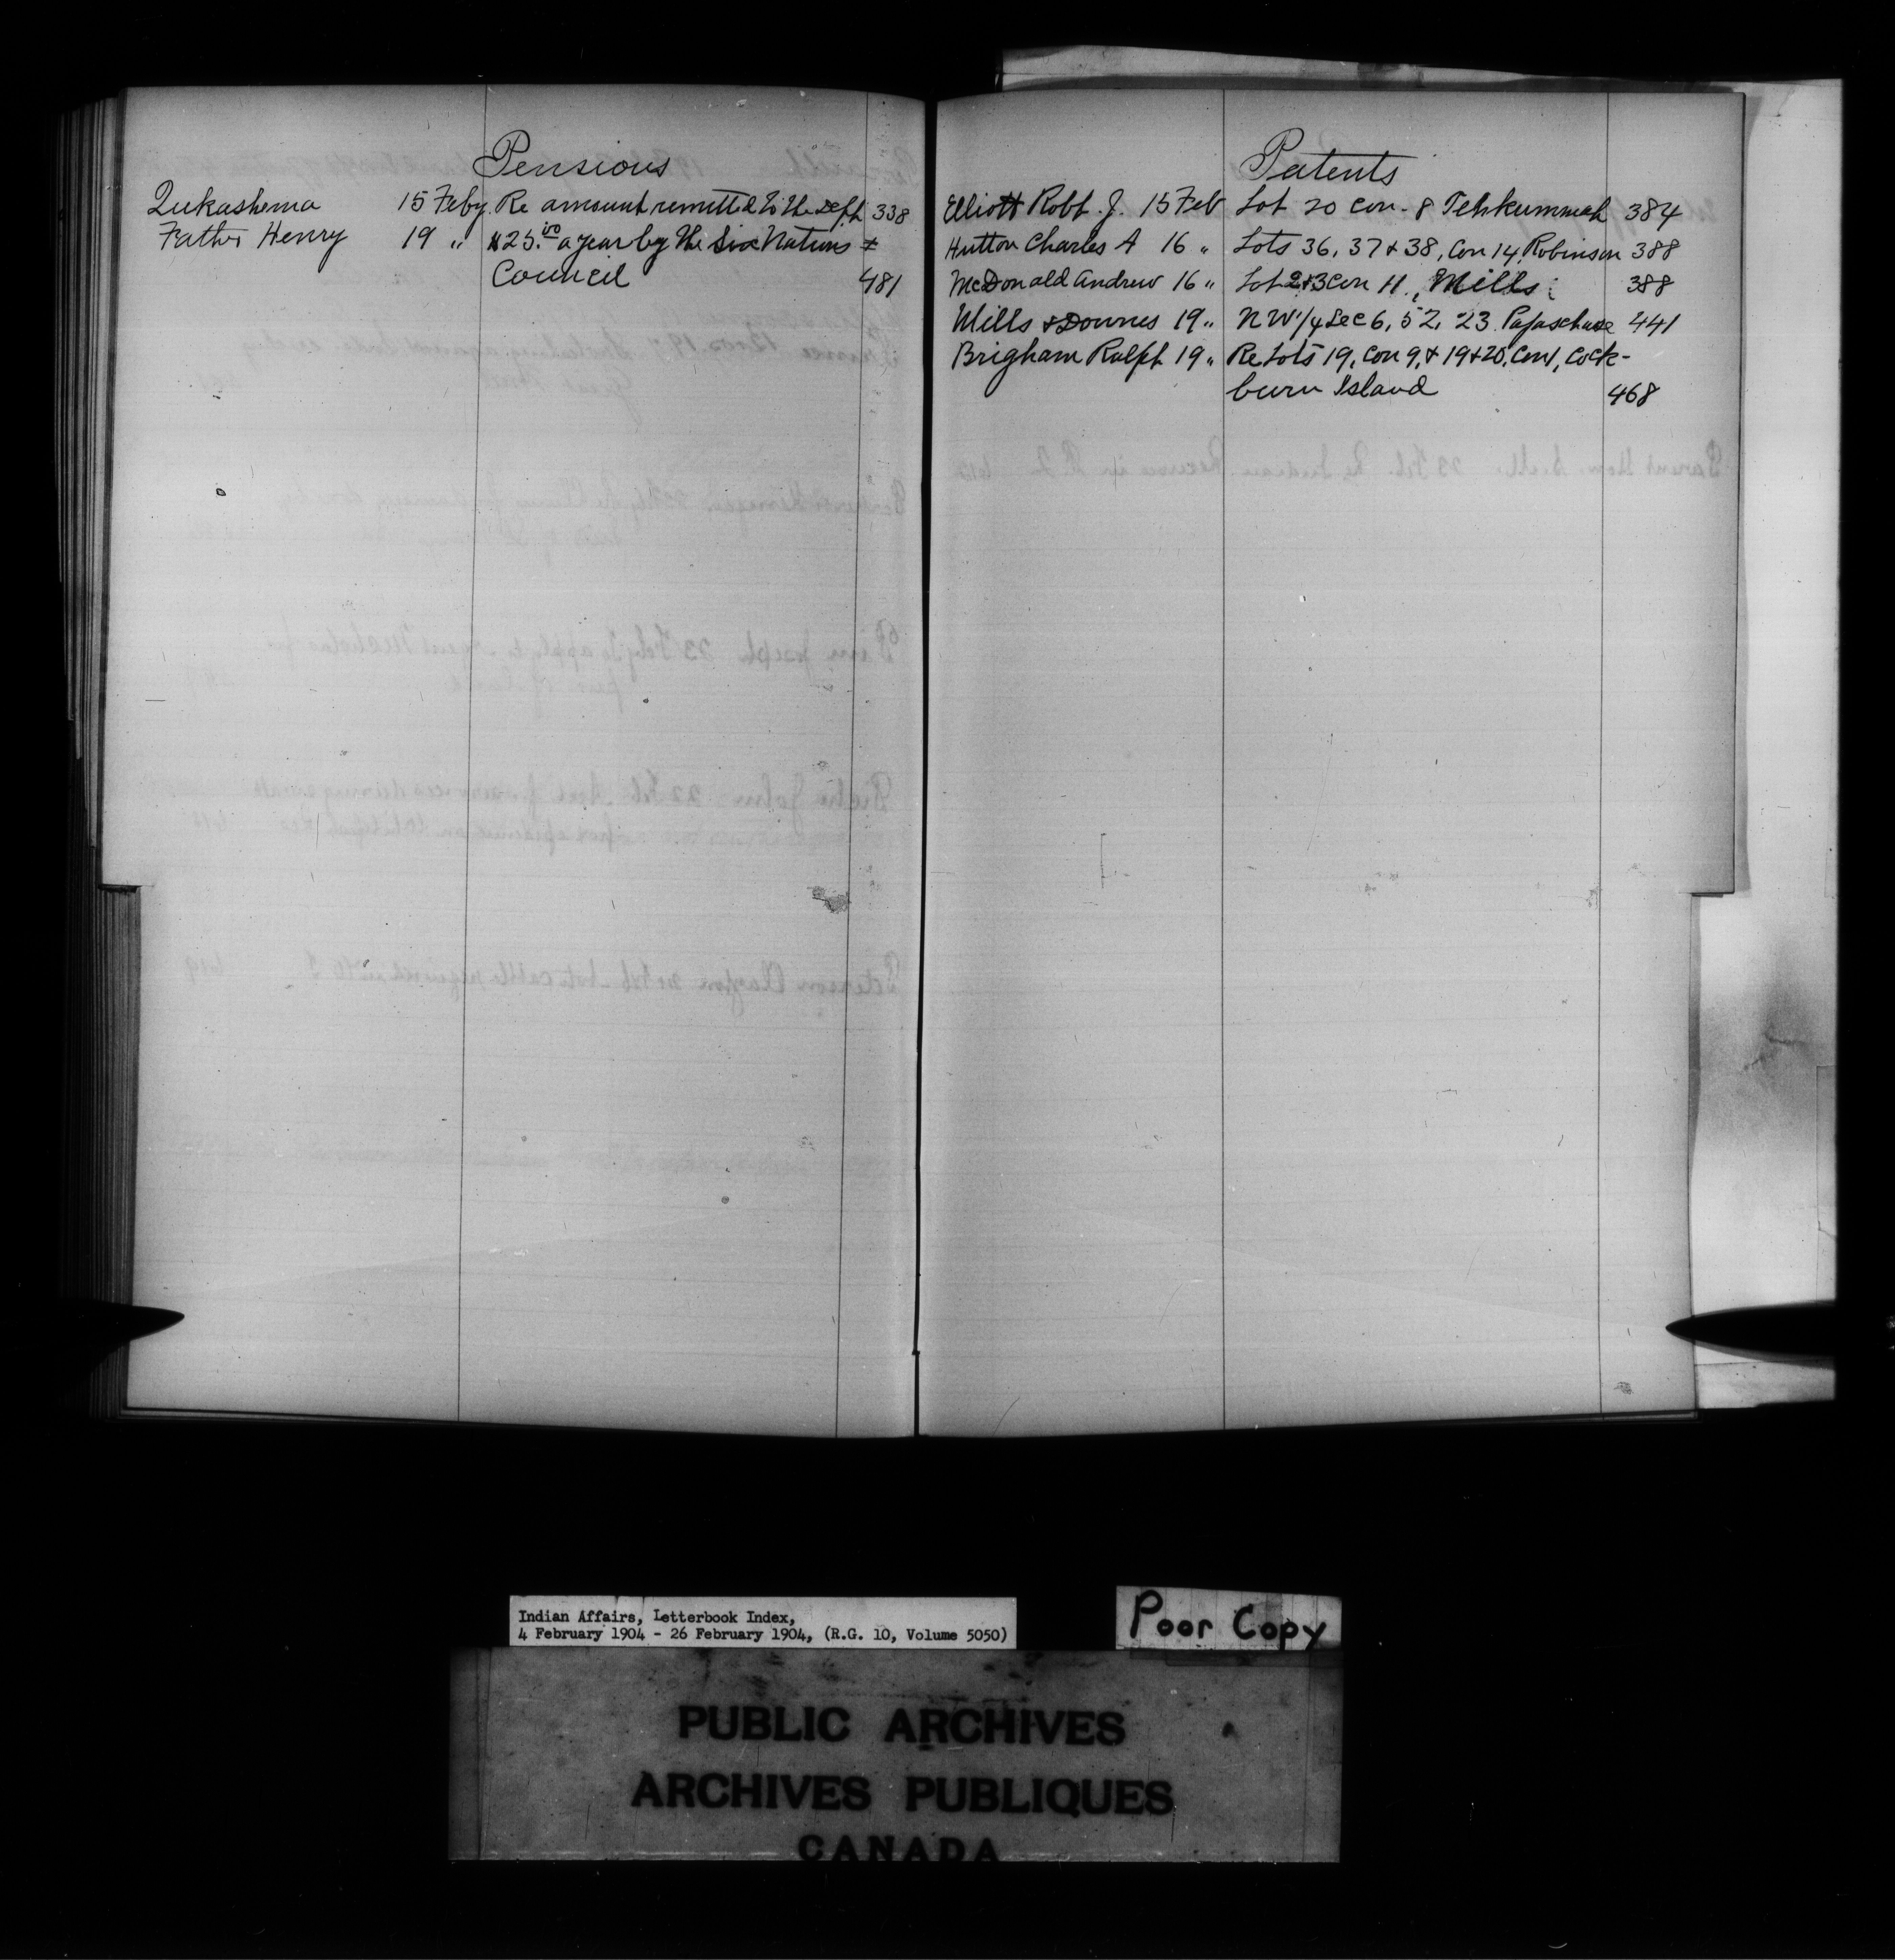 Pensions
Qukashema 15 Feby. Re amount remitted to the Dept 338
Father Henry 19 " $25.00 a year by the Six Nations
Council 481
Patents
Elliott Robt. J. 15 Feb Lot 20 Con. 8 Tehkummah 384
Hutton Charles A 16 " Lots 36, 37 & 38, Con 14, Robinson 388
McDonald Andrew 16 " Lot 2&3 Con 11, Mills 388
Mills & Downes 19 " NW 1/4 Sec 6, 52, 23 Papaschase 441
Brigham Ralph 19 " Re Lots 19, Con 9, & 19 & 20, Con 1, Cock-
burn Island 468
Indian Affairs, Letterbook Index,
4 February 1904 - 26 February 1904, (R.G. 10, Volume 5050)
Poor Copy
PUBLIC ARCHIVES
ARCHIVES PUBLIQUES
CANADA